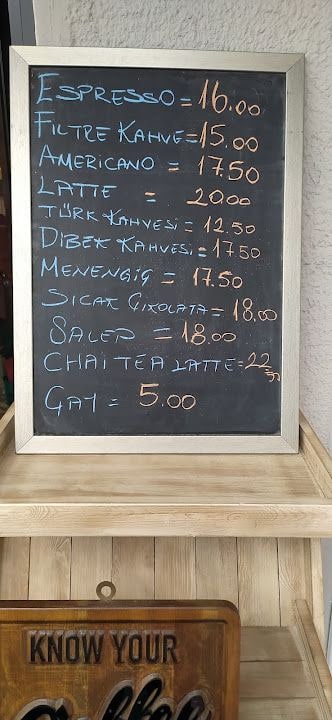 ESPRESSO = 16.00
FİLTRE KAHVE = 15.00
AMERICANO = 17.50
LATTE = 20.00
TÜRK KAHVESİ = 12.50
DİBEK KAHVESİ = 17.50
MENENGİÇ = 17.50
SICAK ÇİKOLATA = 18.00
SALEP = 18.00
CHAI TEA LATTE = 22.50
ÇAY = 5.00
KNOW YOUR
Coffee